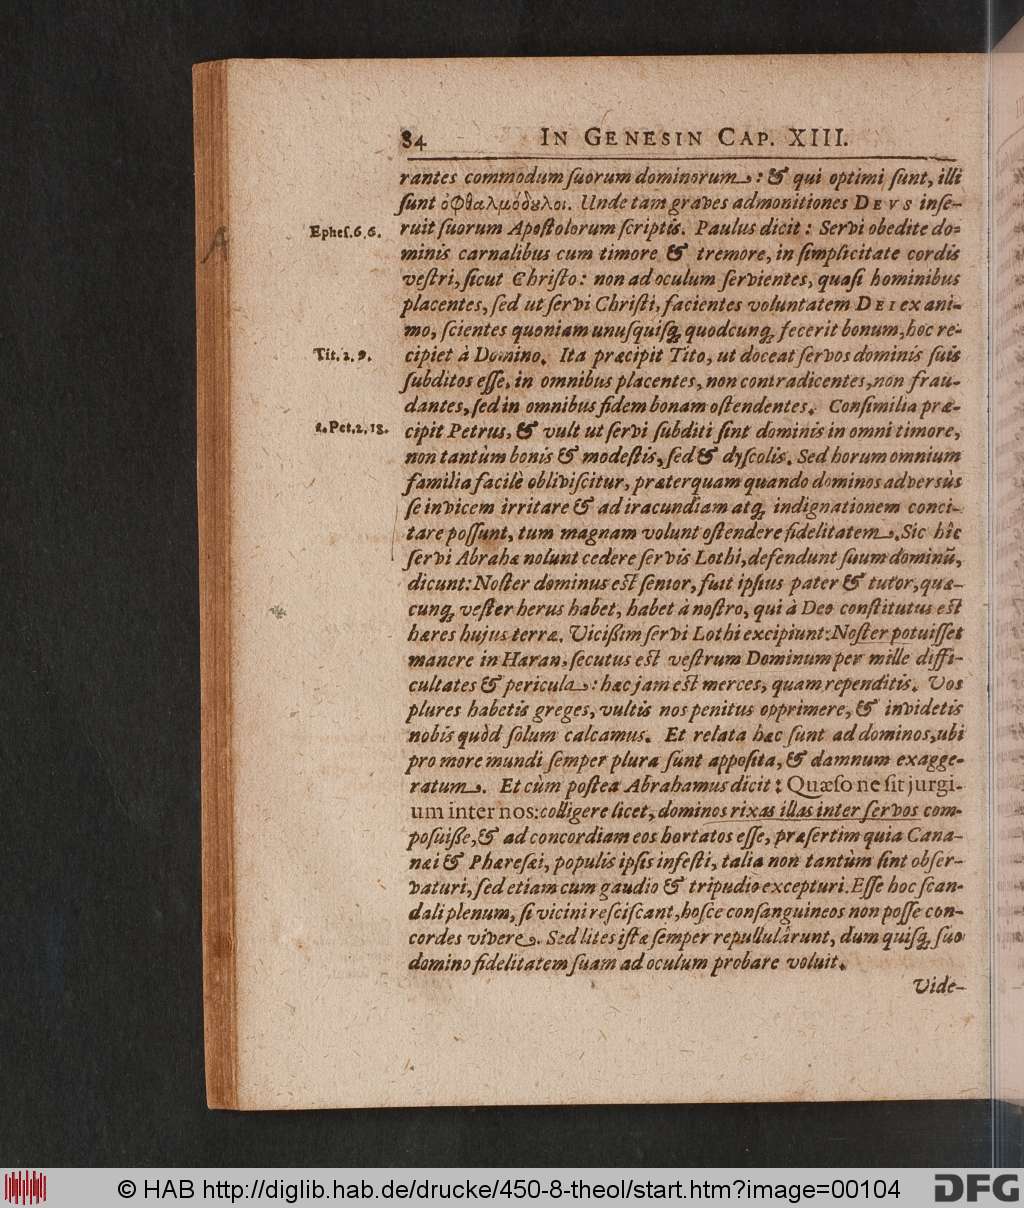 84 IN GENESIN CAP. XIII.
rantes commodum ſuorum dominorum: & qui optimi ſunt, illi
ſunt ὀφθαλμόδȣλοι. Unde tam graves admonitiones DEVS inſe-
Epheſ. 6, 6.
ruit ſuorum Apoſtolorum ſcriptis. Paulus dicit: Servi obedite do-
minis carnalibus cum timore & tremore, in ſimplicitate cordis
veſtri, ſicut Chriſto: non ad oculum ſervientes, quaſi hominibus
placentes, ſed ut ſervi Chriſti, facientes voluntatem DEI ex ani-
mo, ſcientes quoniam unuſquiſq; quodcunq; fecerit bonum, hoc re-
Tit. 2, 9.
cipiet à Domino. Ita præcipit Tito, ut doceat ſervos dominis ſuis
ſubditos eſſe, in omnibus placentes, non contradicentes, non frau-
dantes, ſed in omnibus fidem bonam oſtendentes. Conſimilia præ-
1. Pet. 2, 18.
cipit Petrus, & vult ut ſervi ſubditi ſint dominis in omni timore,
non tantùm bonis & modeſtis, ſed & dyſcolis. Sed horum omnium
familia facilè obliviſcitur, præterquam quando dominos adversùs
ſe invicem irritare & ad iracundiam atq; indignationem conci-
tare poſſunt, tum magnam volunt oſtendere fidelitatem. Sic hîc
ſervi Abrahæ nolunt cedere ſervis Lothi, defendunt ſuum dominũ,
dicunt: Noſter dominus eſt ſenior, fuit ipſius pater & tutor, quæ-
cunq; veſter herus habet, habet à noſtro, qui à Deo conſtitutus eſt
hæres hujus terræ. Viciſſim ſervi Lothi excipiunt: Noſter potuiſſet
manere in Haran, ſecutus eſt veſtrum Dominum per mille diffi-
cultates & pericula: hæc jam eſt merces, quam rependitis. Vos
plures habetis greges, vultis nos penitus opprimere, & invidetis
nobis quòd ſolum calcamus. Et relata hæc ſunt ad dominos, ubi
pro more mundi ſemper plura ſunt appoſita, & damnum exagge-
ratum. Et cùm poſtea Abrahamus dicit: Quæſo ne ſit jurgi-
um inter nos: colligere licet, dominos rixas illas inter ſervos com-
poſuiſſe, & ad concordiam eos hortatos eſſe, præſertim quia Cana-
næi & Phereſæi, populis ipſis infeſti, talia non tantùm ſint obſer-
vaturi, ſed etiam cum gaudio & tripudio excepturi. Eſſe hoc ſcan-
dali plenum, ſi vicini reſciſcant, hoſce conſanguineos non poſſe con-
cordes vivere. Sed lites iſtæ ſemper repullulârunt, dum quiſq; ſuo
domino fidelitatem ſuam ad oculum probare voluit.
Vide-
© HAB http://diglib.hab.de/drucke/450-8-theol/start.htm?image=00104
DFG